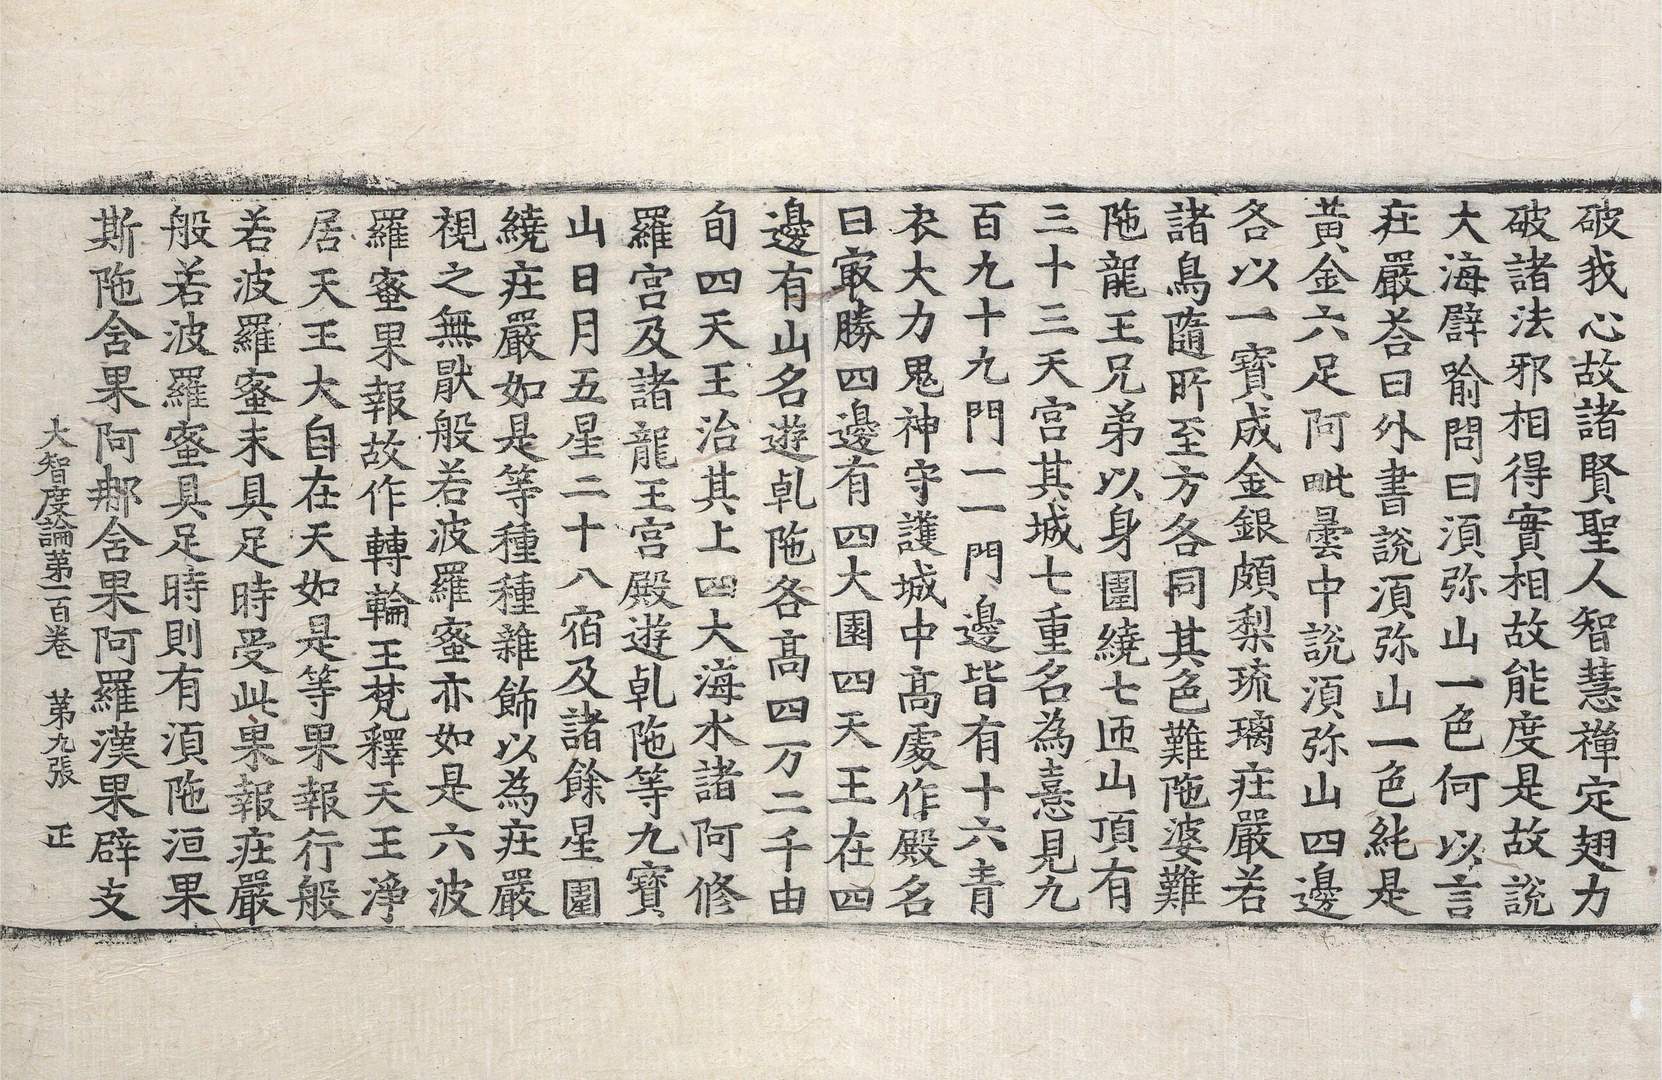 破我心故諸賢聖人智慧禪定翅力
破諸法邪相得實相故能度是故說
大海譬喻問曰湏弥山一色何以言
㽵嚴荅曰外書說湏弥山一色純是
黃金六足阿毗曇中說湏弥山四邊
各以一寶成金銀頗梨琉璃㽵嚴若
諸鳥隨所至方各同其色難陁婆難
陁龍王兄弟以身圍繞七匝山頂有
三十三天宮其城七重名為憙見九
百九十九門一一門邊皆有十六青
衣大力鬼神守護城中高處作殿名
曰㝡勝四邊有四大園四天王在四
邊有山名遊乹陁各高四万二千由
旬四天王治其上四大海水諸阿修
羅宮及諸龍王宮殿遊乹陁等九寶
山日月五星二十八宿及諸餘星圍
繞㽵嚴如是等種種雜飾以為㽵嚴
視之無猒般若波羅蜜亦如是六波
羅蜜果報故作轉輪王梵釋天王淨
居天王大自在天如是等果報行般
若波羅蜜未具足時受此果報㽵嚴
般若波羅蜜具足時則有湏陁洹果
斯陁含果阿那含果阿羅漢果辟支
大智度論第一百卷　第九張　正